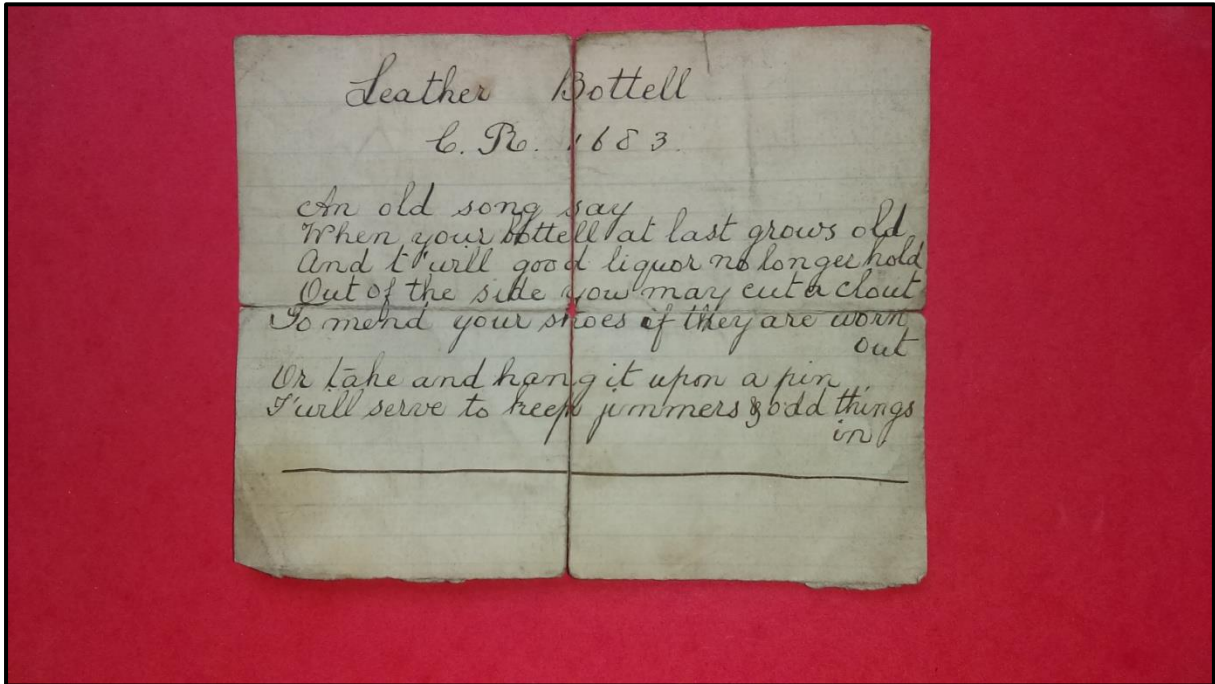 Leather Bottell
C. R. 1683.
An old song say
When your bottell at last grows old
And t'will good liquor no longer hold
Out of the side you may cut a clout
To mend your shoes if they are worn
out
Or take and hang it upon a pin
T'will serve to keep jimmers & odd things
in